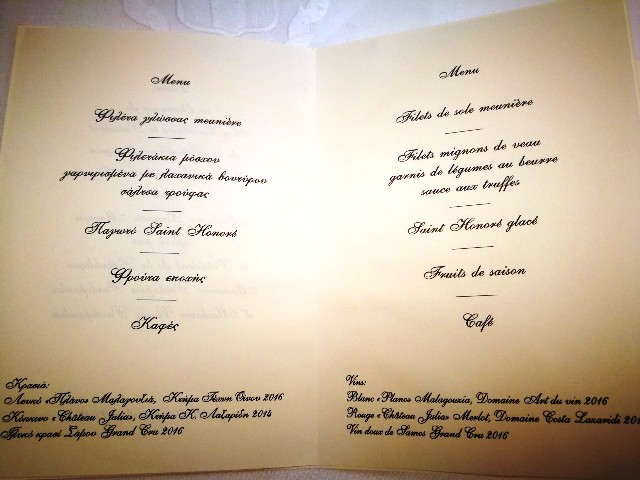 Menu
Φιλέτα γλώσσας meunière
Φιλετάκια μόσχου
γαρνιρισμένα με λαχανικά βουτύρου
σάλτσα τρούφας
Παγωτό Saint Honoré
Φρούτα εποχής
Καφές
Κρασιά:
Λευκό «Πλάνος» Μαλαγουζιά, Κτήμα Τέχνη Οίνου 2016
Κόκκινο «Château Julia», Κτήμα Κ. Λαζαρίδη 2014
Γλυκό κρασί Σάμου Grand Cru 2016
Menu
Filets de sole meunière
Filets mignons de veau
garnis de légumes au beurre
sauce aux truffes
Saint Honoré glacé
Fruits de saison
Café
Vins:
Blanc «Plano» Malagouzia, Domaine Art du vin 2016
Rouge «Château Julia» Merlot, Domaine Costa Lazaridi
Vin doux de Samos Grand Cru 2016